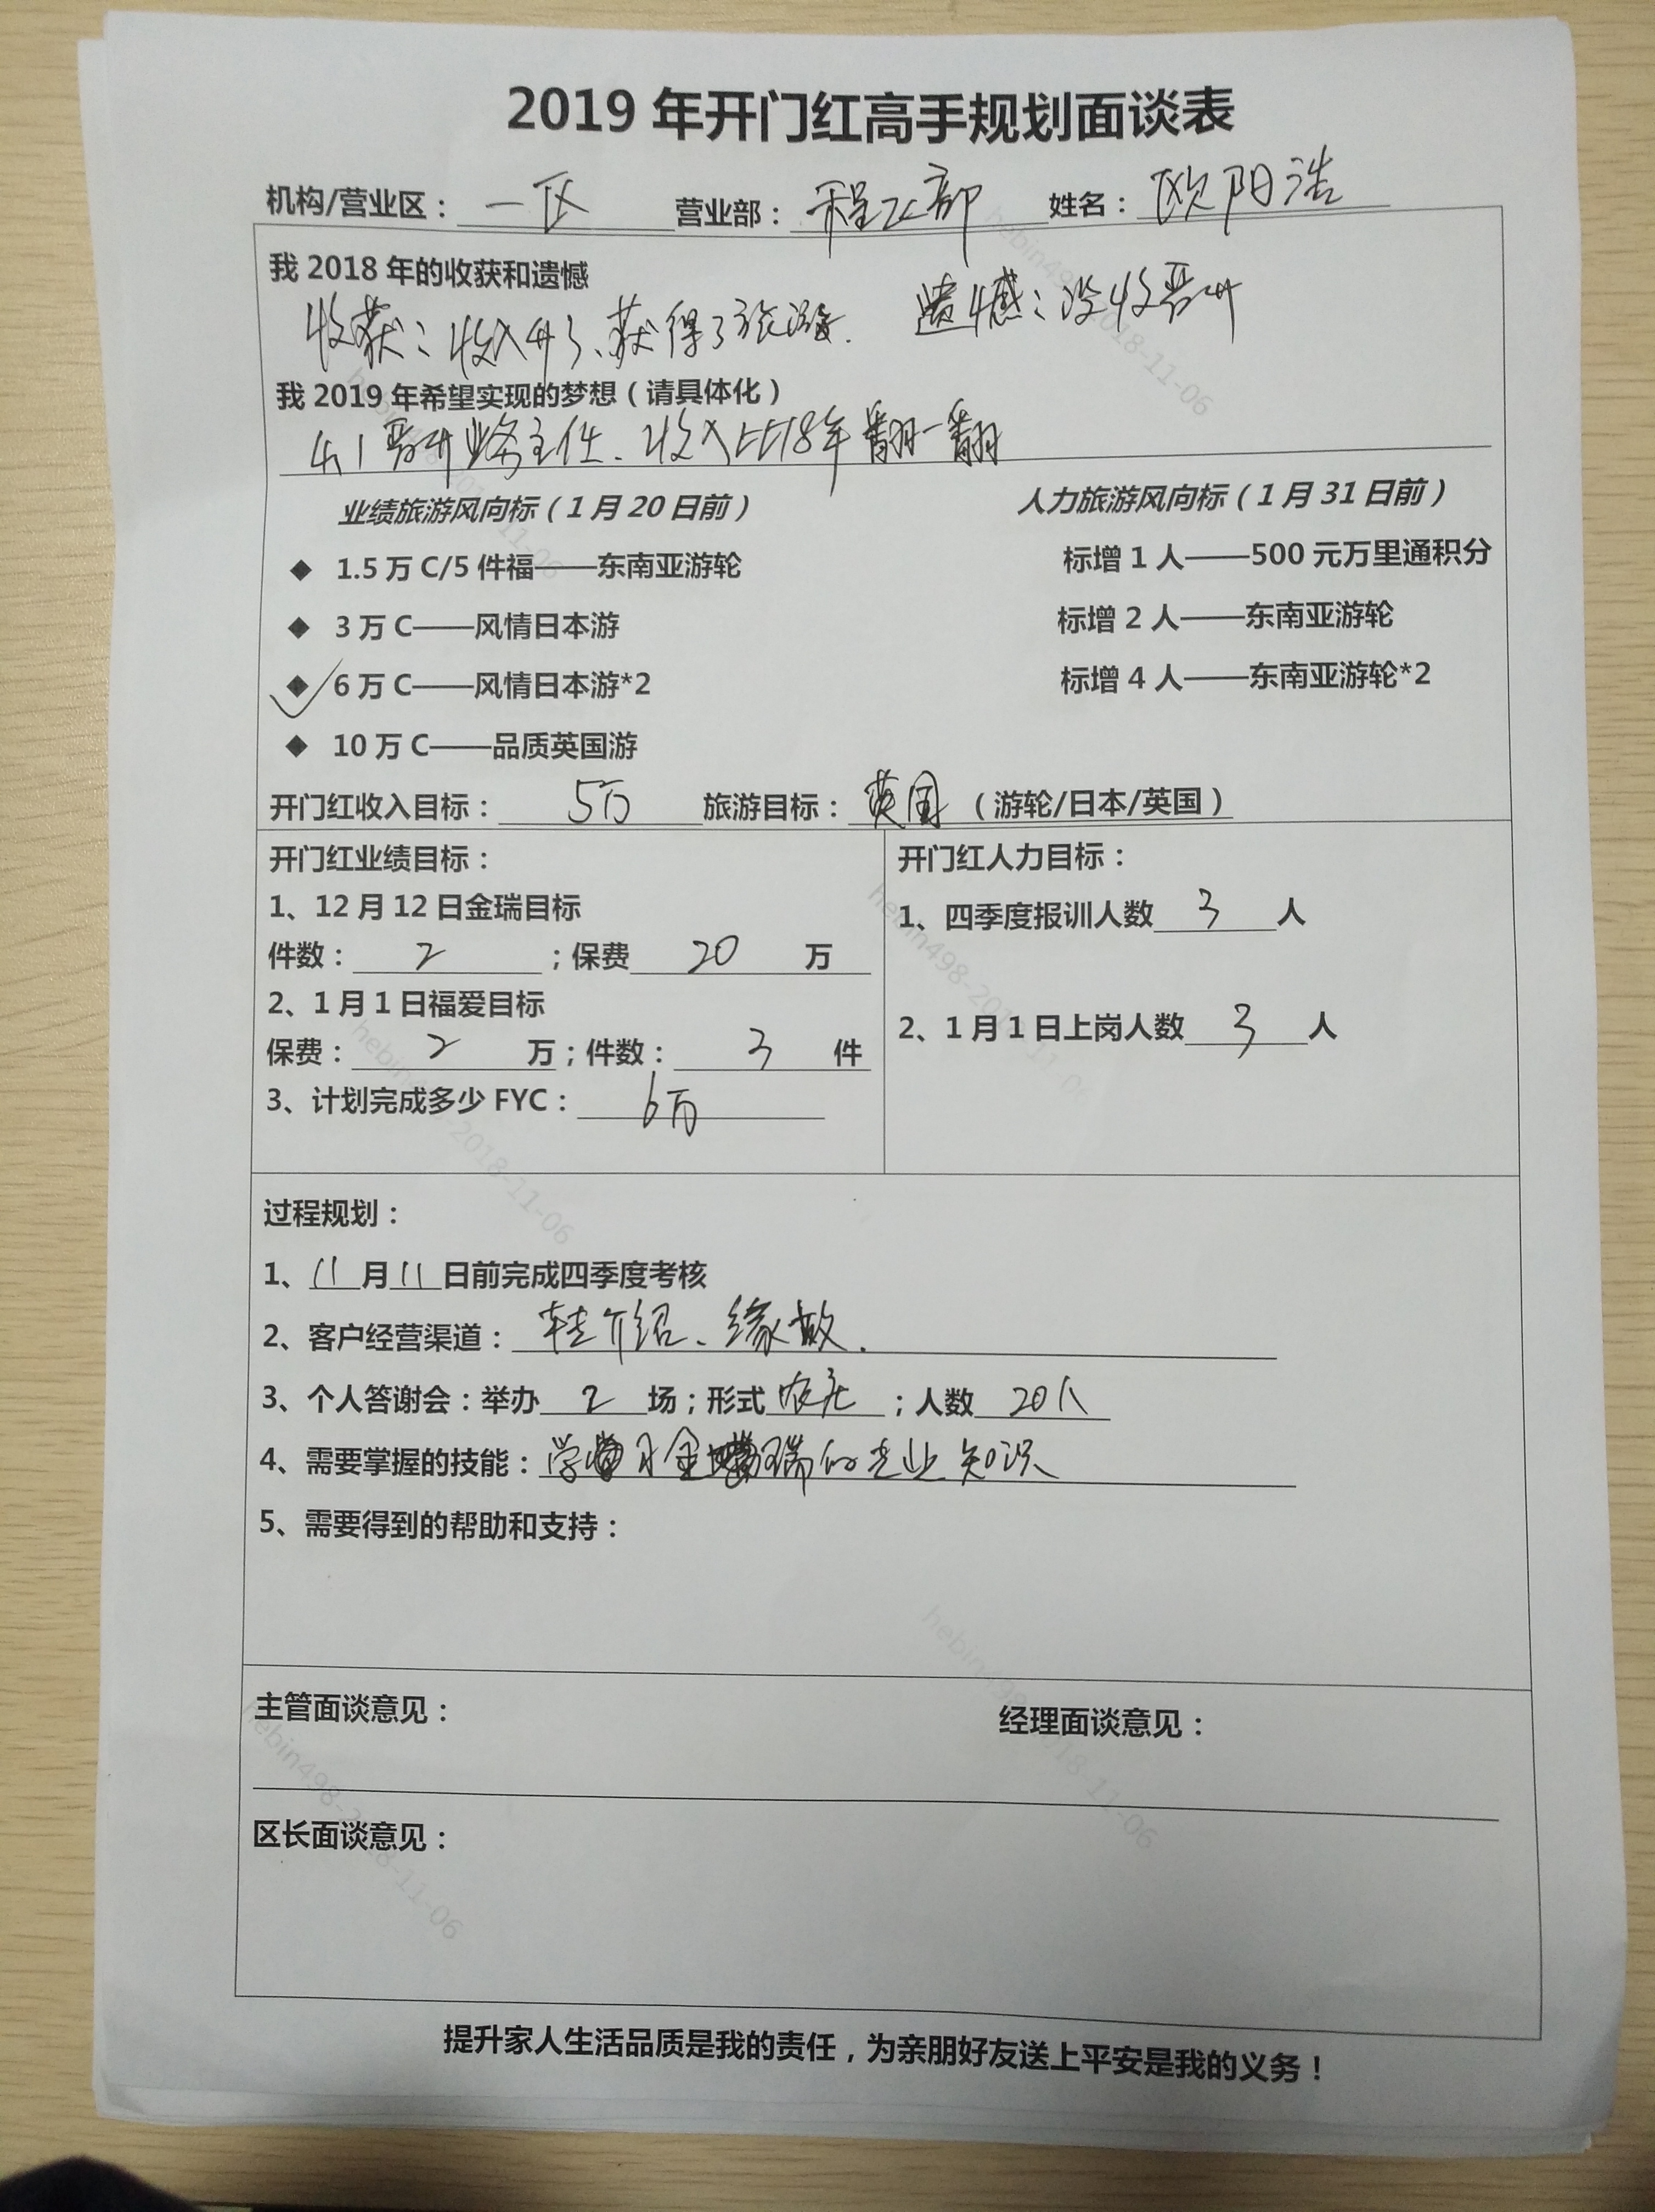 2019年开门红高手规划面谈表
机构/营业区：一区 营业部：程部 姓名：欧阳浩
我2018年的收获和遗憾
收获：收入升了、获得了旅游. 遗憾：没收晋升
我2019年希望实现的梦想（请具体化）
晋升业务主任、收入比18年翻一翻
业绩旅游风向标（1月20日前） 人力旅游风向标（1月31日前）
◆ 1.5万C/5件福——东南亚游轮 标增1人——500元万里通积分
◆ 3万C——风情日本游 标增2人——东南亚游轮
◆ 6万C——风情日本游*2 标增4人——东南亚游轮*2
◆ 10万C——品质英国游
开门红收入目标：5万 旅游目标：英国（游轮/日本/英国）
开门红业绩目标： 开门红人力目标：
1、12月12日金瑞目标
件数：2；保费20万 1、四季度报训人数3人
2、1月1日福爱目标
保费：2万；件数：3件 2、1月1日上岗人数3人
3、计划完成多少FYC：6万
过程规划：
1、11月11日前完成四季度考核
2、客户经营渠道：转介绍、缘故.
3、个人答谢会：举办2场；形式农庄；人数20人
4、需要掌握的技能：学习金瑞的专业知识
5、需要得到的帮助和支持：
主管面谈意见： 经理面谈意见：
区长面谈意见：
提升家人生活品质是我的责任，为亲朋好友送上平安是我的义务！
hebin498-2018-11-06